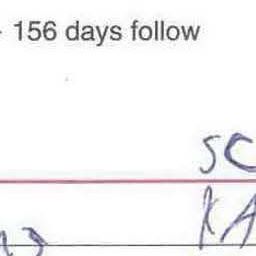 156 days follow
SC
KA